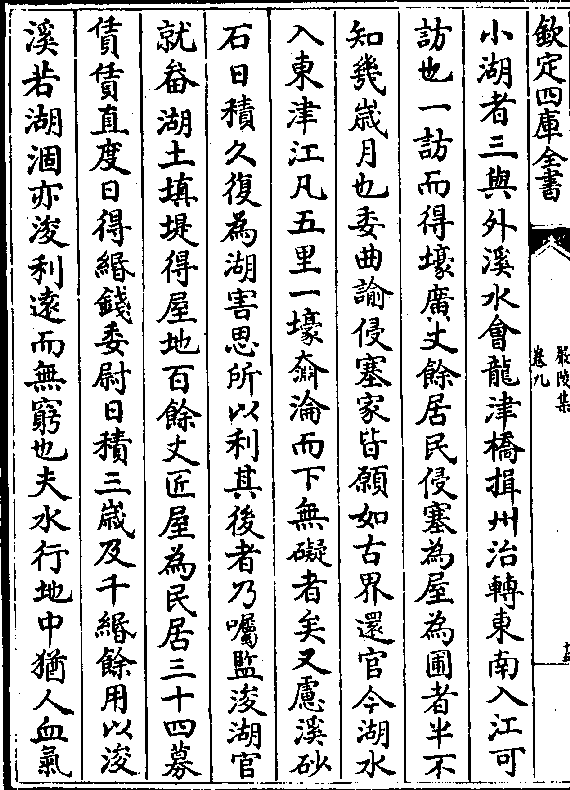 欽定四庫全書
嚴陵集
卷九
小湖者三與外溪水會龍津橋揖州治轉東南入江可
訪也一訪而得壕廣丈餘居民侵塞為屋為圃者半不
知幾歲月也委曲諭侵塞家皆願如古界還官今湖水
入東津江凡五里一壕奫淪而下無礙者矣又慮溪砂
石日積久復為湖害思所以利其後者乃囑監浚湖官
就畚湖土填堤得屋地百餘丈匠屋為民居三十四募
賃賃直度日得緡錢委尉日積三歲及千緡餘用以浚
溪若湖涸亦浚利遠而無窮也夫水行地中猶人血氣